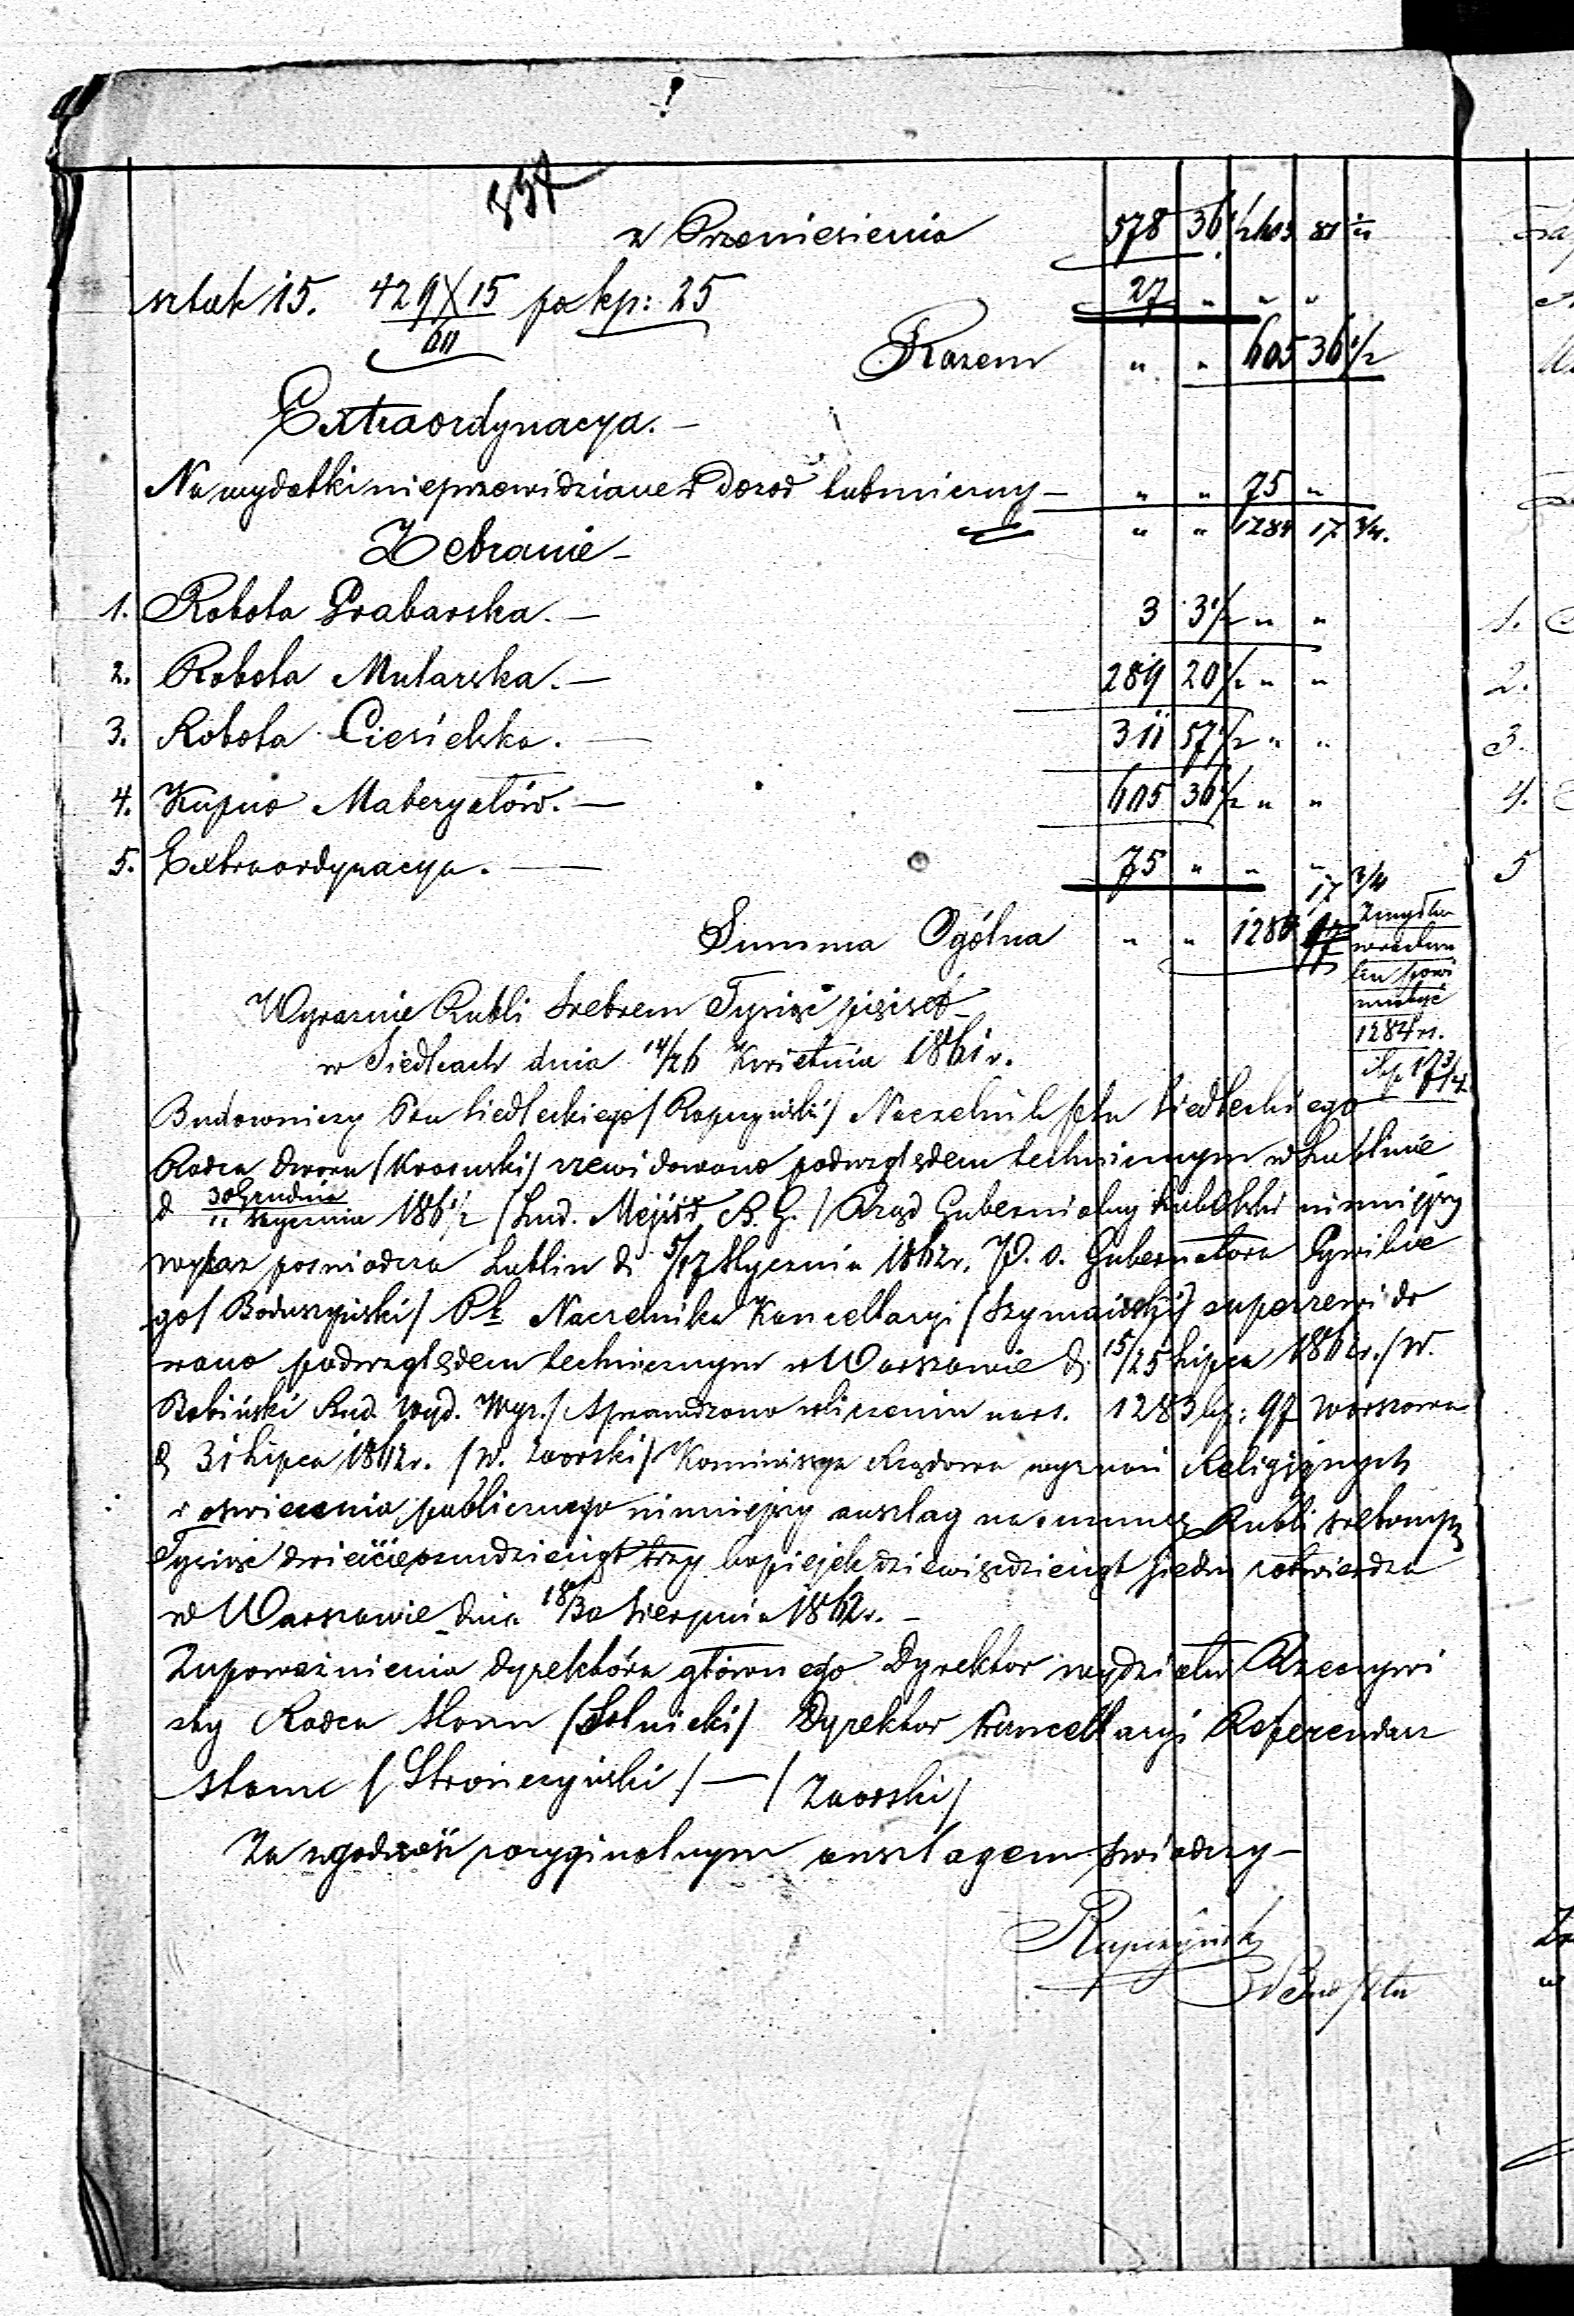 z Przeniesienia 578 36 1/2
sztuk 15. 429 X 15 po kp: 25 27 " " "
60
Razem " " 605 36 1/2
Extraordynacya. —
Na wydatki nieprzewidziane i dozór techniczny — " " 75 "
" " 1284 17 3/4.
Zebranie —
1. Robota Grabarska. — 3 3 1/2 " "
2. Robota Mularska. — 289 20 1/2 " "
3. Robota Ciesielska. — 311 57 1/2 " "
4. Kupno Materyałów. — 605 36 1/2 " "
5. Extraordynacya. — 75 " " "
17 3/4
Summa Ogólna " " 1284
Wyraźnie Rubli Srebrem Tysiąc
w Siedlcach dnia 14/26 Kwietnia 1861 r.
1284 rs.
kp. 17 3/4
Budowniczy Ptu Siedleckiego / Rapczyński / Naczelnik Ptu Siedleckiego
Radca Dworu / Krasuski / zrewidowano pod względem technicznym w Lublinie
d 30 Grudnia / 11 Stycznia 1861/2 / Bud. B. G. / Rząd Gubernialny Lubelski niniejszy
wykaz poświadcza Lublin d. 5/17 Stycznia 1862 r. P. o. Gubernatora Cywilne
go / Boduszyński / Naczelnika Kancellaryi / Szymański / superrewido
wano pod względem technicznym w Warszawie d. 15/25 Lipca 1862 r. / W.
Bobiński Bud. Wyd. Wyz. / Sprawdzono w liczeniu na rs. 1283 kp: 97 Warszawa
d 31 Lipca 1862 r. / W. Zaorski / Kommissya Rządowa wyznań Religijnych
i oświecenia publicznego niniejszy anszlag na summę Rubli srebrem
Tysiąc dwieście ośmdziesiąt trzy kopiejek dziewięćdziesiąt siedm zatwierdza
w Warszawie dnia 18/30 Sierpnia 1862 r. —
Z upoważnienia Dyrektora głównego Dyrektor wydziału Rzeczywi
sty Radca Stanu / Solnicki / Dyrektor Kancellaryi Referendarz
Stanu / Strończyński / — / Zaorski /
Za zgodność z oryginalnym anszlagem świadczy —
Rapczyński